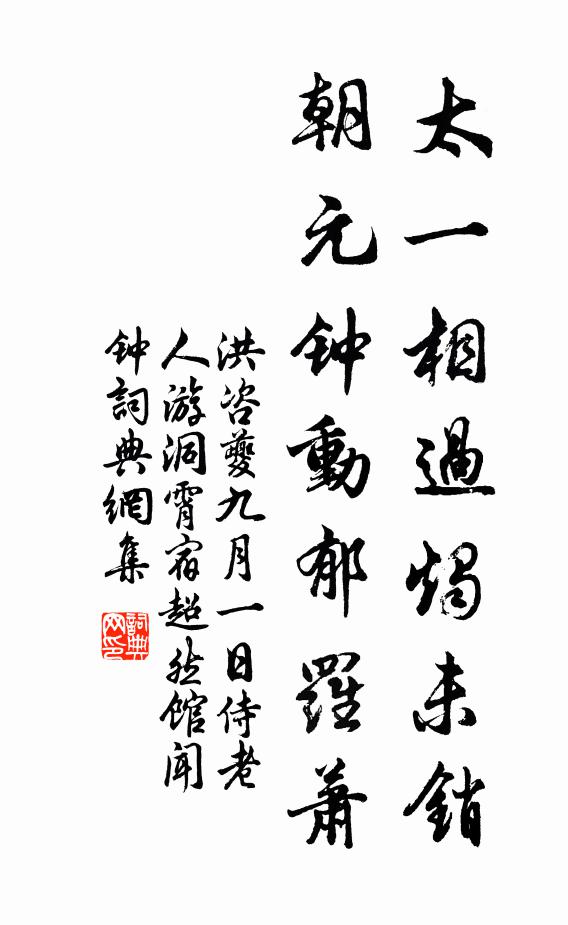 太一相過燭未銷
朝元钟動郁羅蕭
洪咨夔九月一日侍老
人游洞霄宿超然馆闻
钟詞典網集
詞典
网印